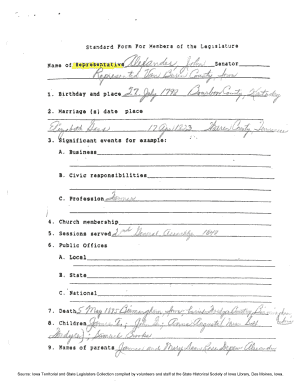 Standard Form For Members of the Legislature
Name of Representative Alexander, John Senator
Represented Van Buren County, Iowa
1. Birthday and place 27 July 1798 Bourbon County, Kentucky
2. Marriage (s) date place
17 Apr 1823 County
3. Significant events for example:
A. Business
B. Civic responsibilities
C. Profession Farmer
4. Church membership
5. Sessions served 2nd General Assembly 1848
6. Public Offices
A. Local
B. State
C. National
7. Death 5 May 1885 Birmingham Iowa;
8. Children
9. Names of parents James and Mary Alexander
Source: Iowa Territorial and State Legislators Collection compiled by volunteers and staff at the State Historical Society of Iowa Library, Des Moines, Iowa.